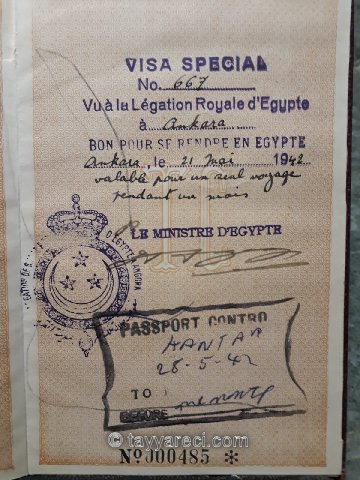 VISA SPECIAL
No. 667
Vu à la Légation Royale d'Egypte
à Ankara
BON POUR SE RENDRE EN EGYPTE
Ankara, le 21 Mai 1942
valable pour un seul voyage
pendant un mois
LE MINISTRE D'EGYPTE
D'EGYPTE ANGORA
PASSPORT CONTRO
28-5-42
TO
BEFORE
© tayyareci.com
No J00485 *